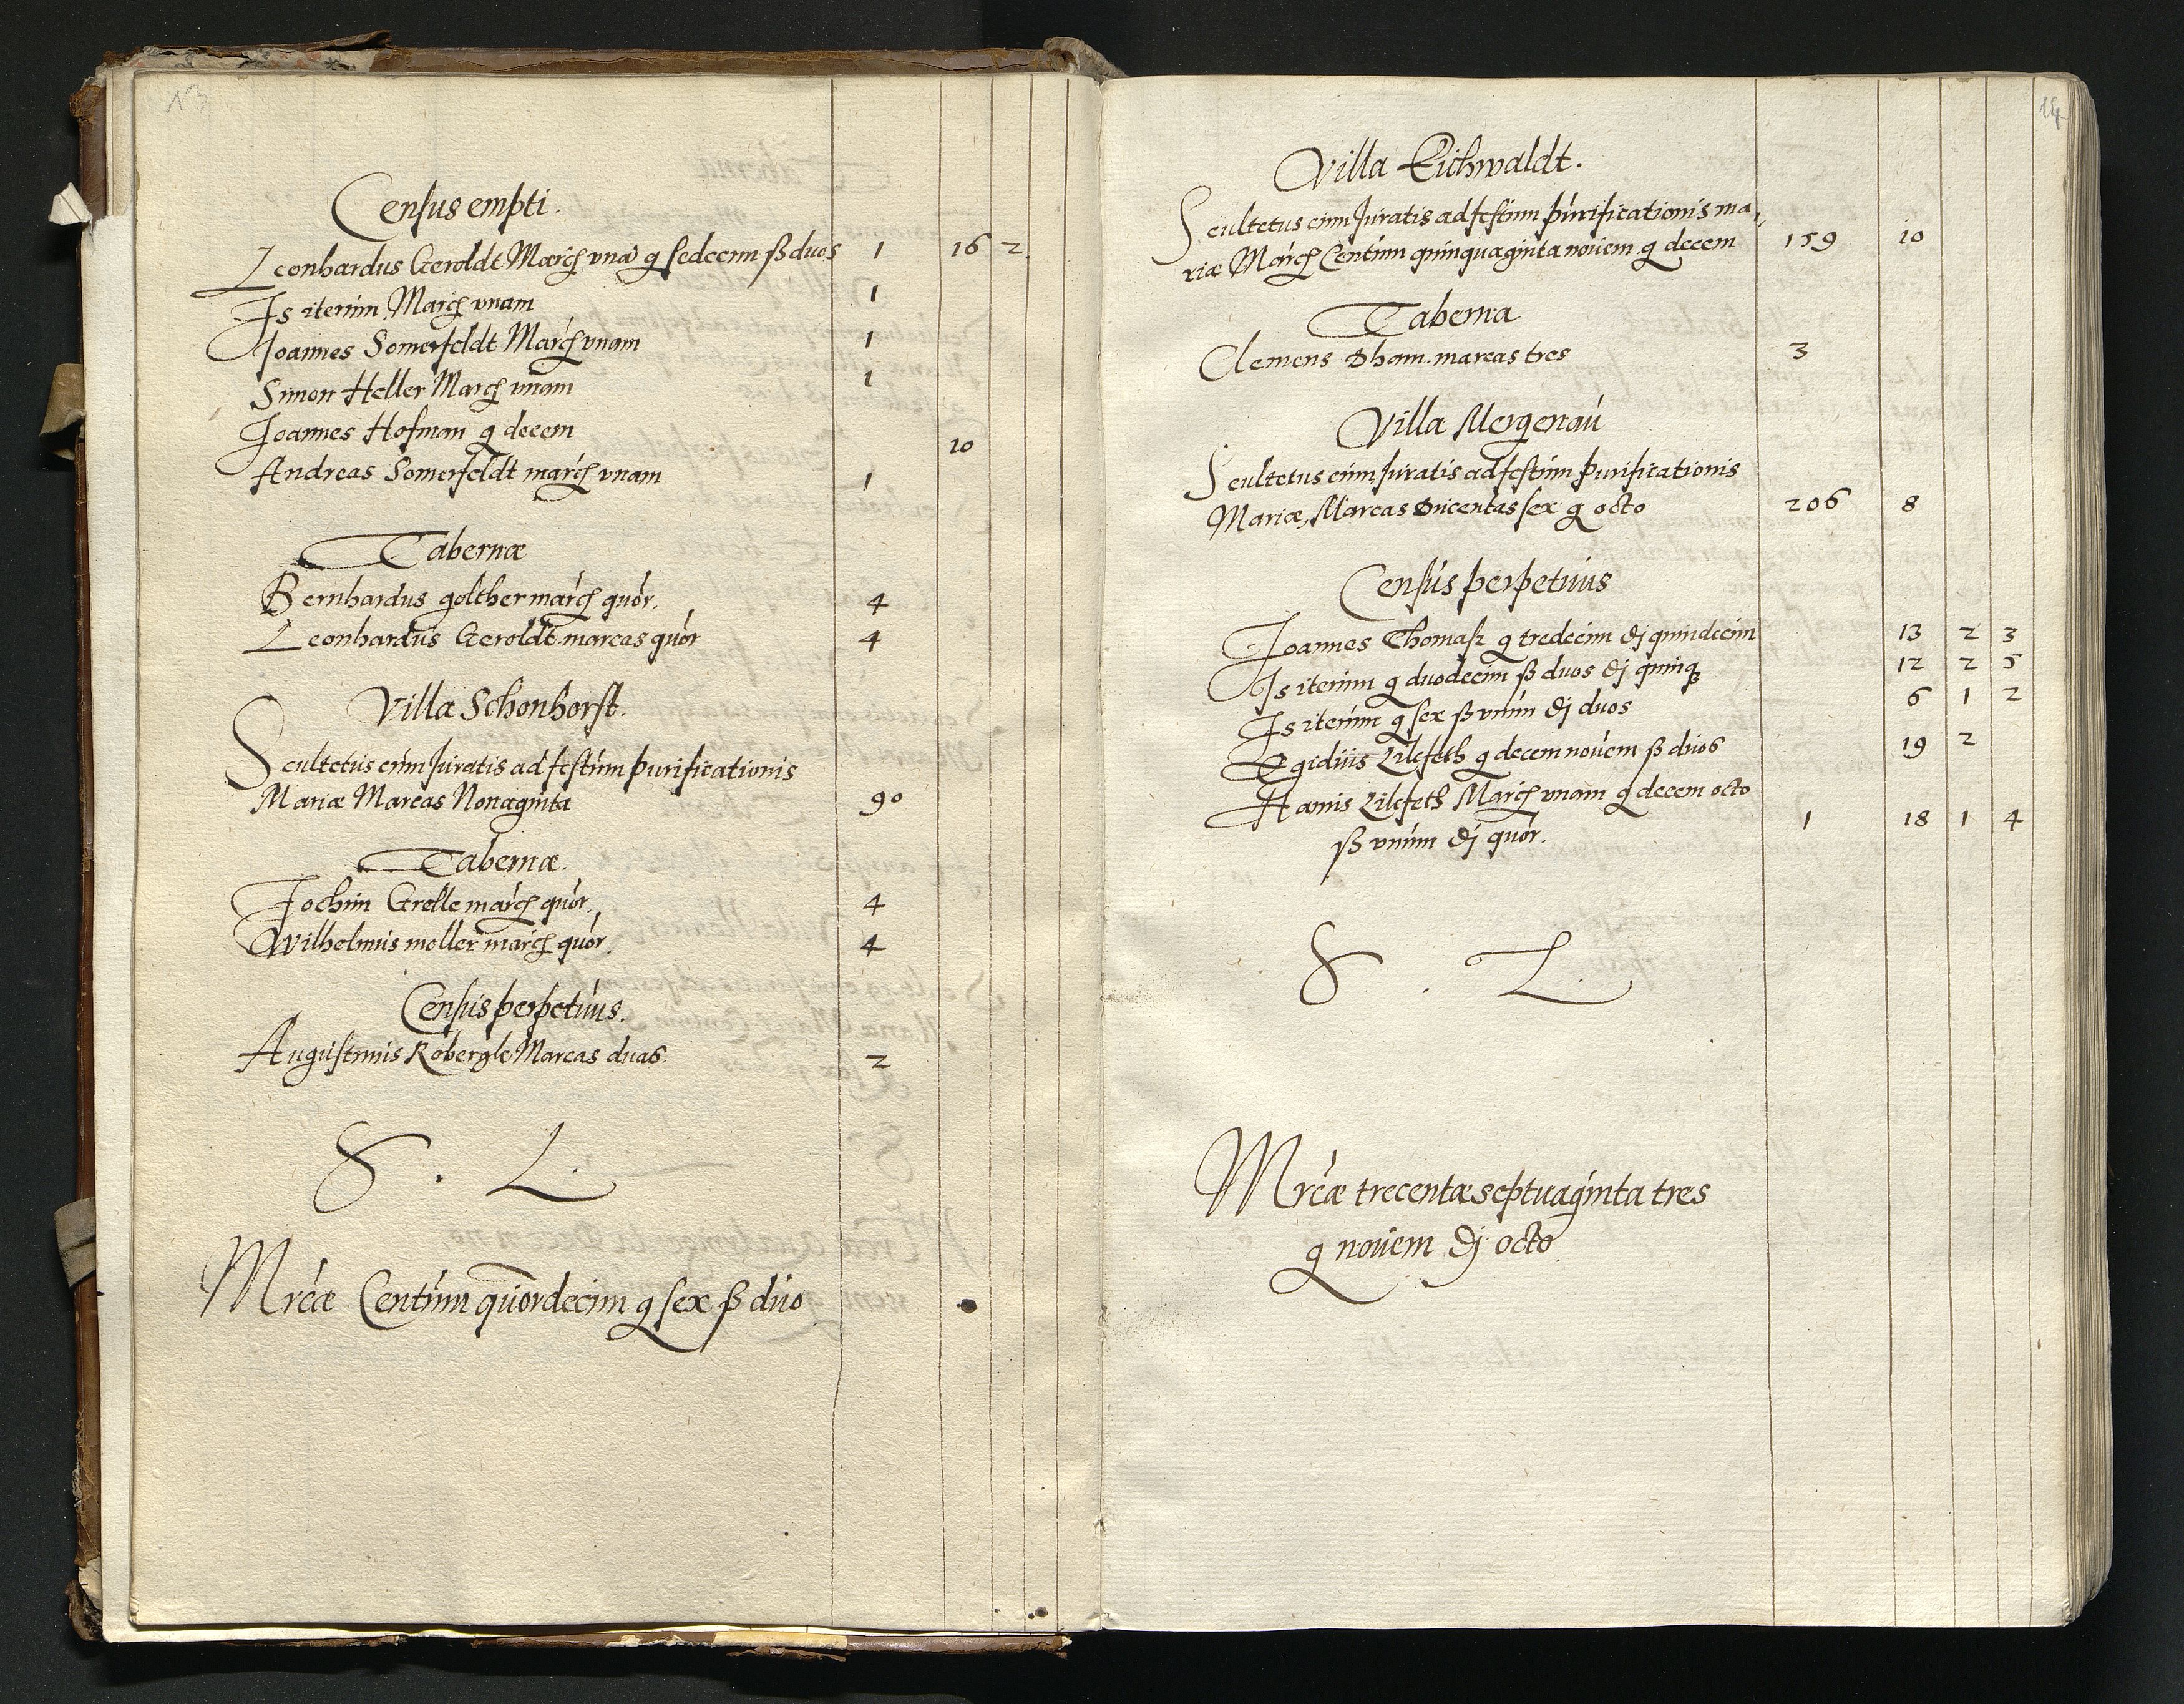 13
Census empti.
Leonhardus Geroldt Marcȝ vnā g̃ sedecim ß duos 1 16 2.
Is iterùm Marcȝ vnam 1
Joannes Somerfeldt Marcȝ vnam 1
Simon Heller Marcȝ vnam 1
Joannes Hofman g̃ decem 10
Andreas Somerfeldt marcȝ vnam 1
Tabernæ
Bernhardus golther marcȝ quór. 4
Leonhardus Geroldt marcas quór 4
Villa Schonhorst.
Scultetus cùm Juratis ad festùm purificationis
Mariæ Marcas Nonaginta 90
Tabernæ.
Jochim Grolle marcȝ quór. 4
Wilhelmus moller marcȝ quór. 4
Census perpetùus.
Augustinus Robergle Marcas duas. 2
S. L.
Mrcæ Centùm quordecim g̃ sex ß duo
14
Villa Eichwaldt.
Scultetus cum Juratis ad festùm pùrificationis ma,
riæ Marcȝ Centùm quinquaginta nouem g̃ decem 159 10
Taberna
Clemens Dham. marcas tres 3
Villa Mergenaù
Scultetus cùm Juratis ad festùm purificationis
Mariæ, Marcas Ducentas sex g̃ octo 206 8
Censùs perpetuus
Joannes Thomasz g̃ tredecim ₰ quindecim 13 2 3
Is iterùm g̃ duodecim ß duos ₰ quinqȝ 12 2 5
Is iterùm g̃ sex ß vnùm ₰ dùos 6 1 2
Egidius Lilefeth g̃ decem nouem ß duos 19 2
Hannis Lilefeth Marcȝ vnam g̃ decem octo
ß vnùm ₰ quór. 1 18 1 4
S. L.
Mrcæ trecentæ septuaginta tres
g̃ nouem ₰ octo